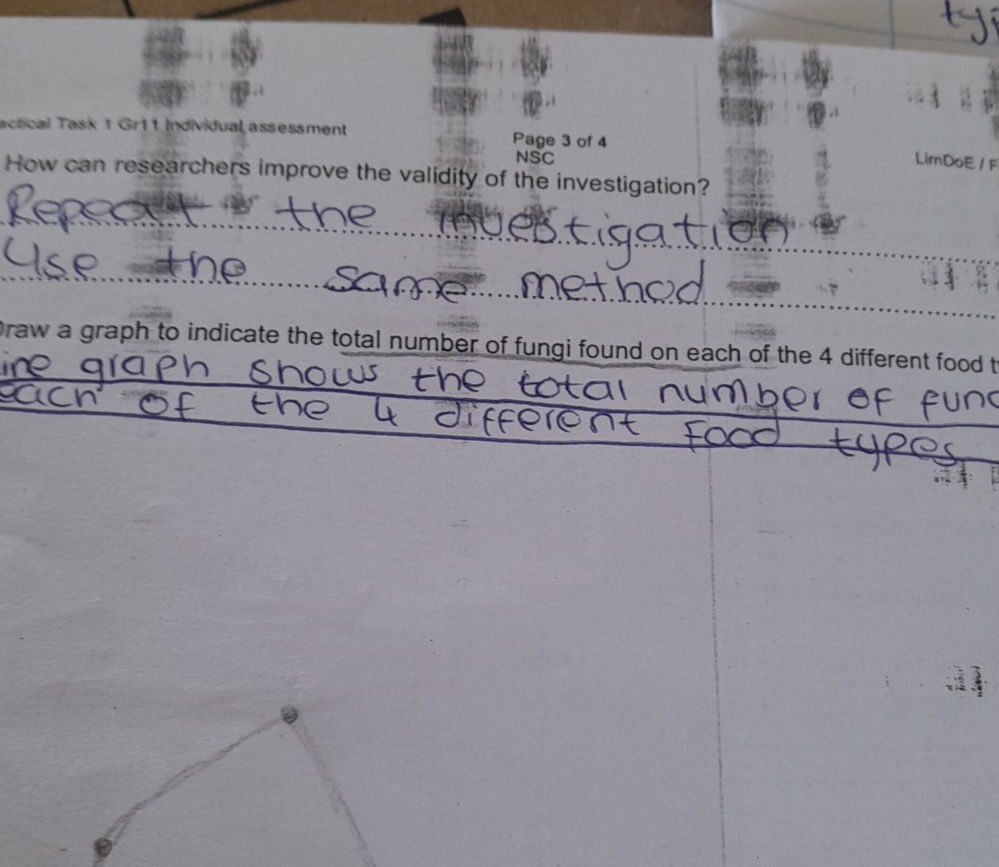 tyi
actical Task 1 Gr11 Individual assessment
Page 3 of 4
NSC
LimDoE / F
How can researchers improve the validity of the investigation?
Repeat the investigation
Use the same method
Draw a graph to indicate the total number of fungi found on each of the 4 different food t
ine graph shows the total number of fung
each of the 4 different food types